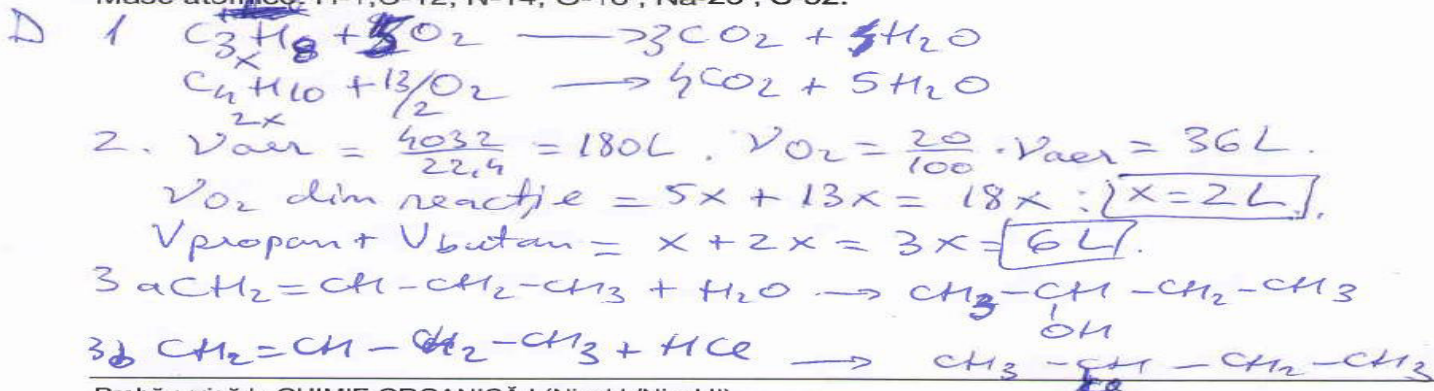 Mase atomice: H-1,C-12, N-14, O-16 , Na-23 ,
D 1 C3H8 + 5O2 ⟶ 3CO2 + 4H2O
x
C4H10 + 13/2 O2 ⟶ 4CO2 + 5H2O
2x
2. Vaer = 4032/22,4 = 180L . VO2 = 20/100 · Vaer = 36L.
VO2 din reacție = 5x + 13x = 18x : x=2L.
Vpropan + Vbutan = x + 2x = 3x = 6L.
3 a CH2=CH-CH2-CH3 + H2O → CH3-CH-CH2-CH3
OH
3b CH2=CH-CH2-CH3 + HCl → CH3-CH-CH2-CH3
Probă scrisă la CHIMIE ORGANICĂ I (Nivel I/Nivel II)